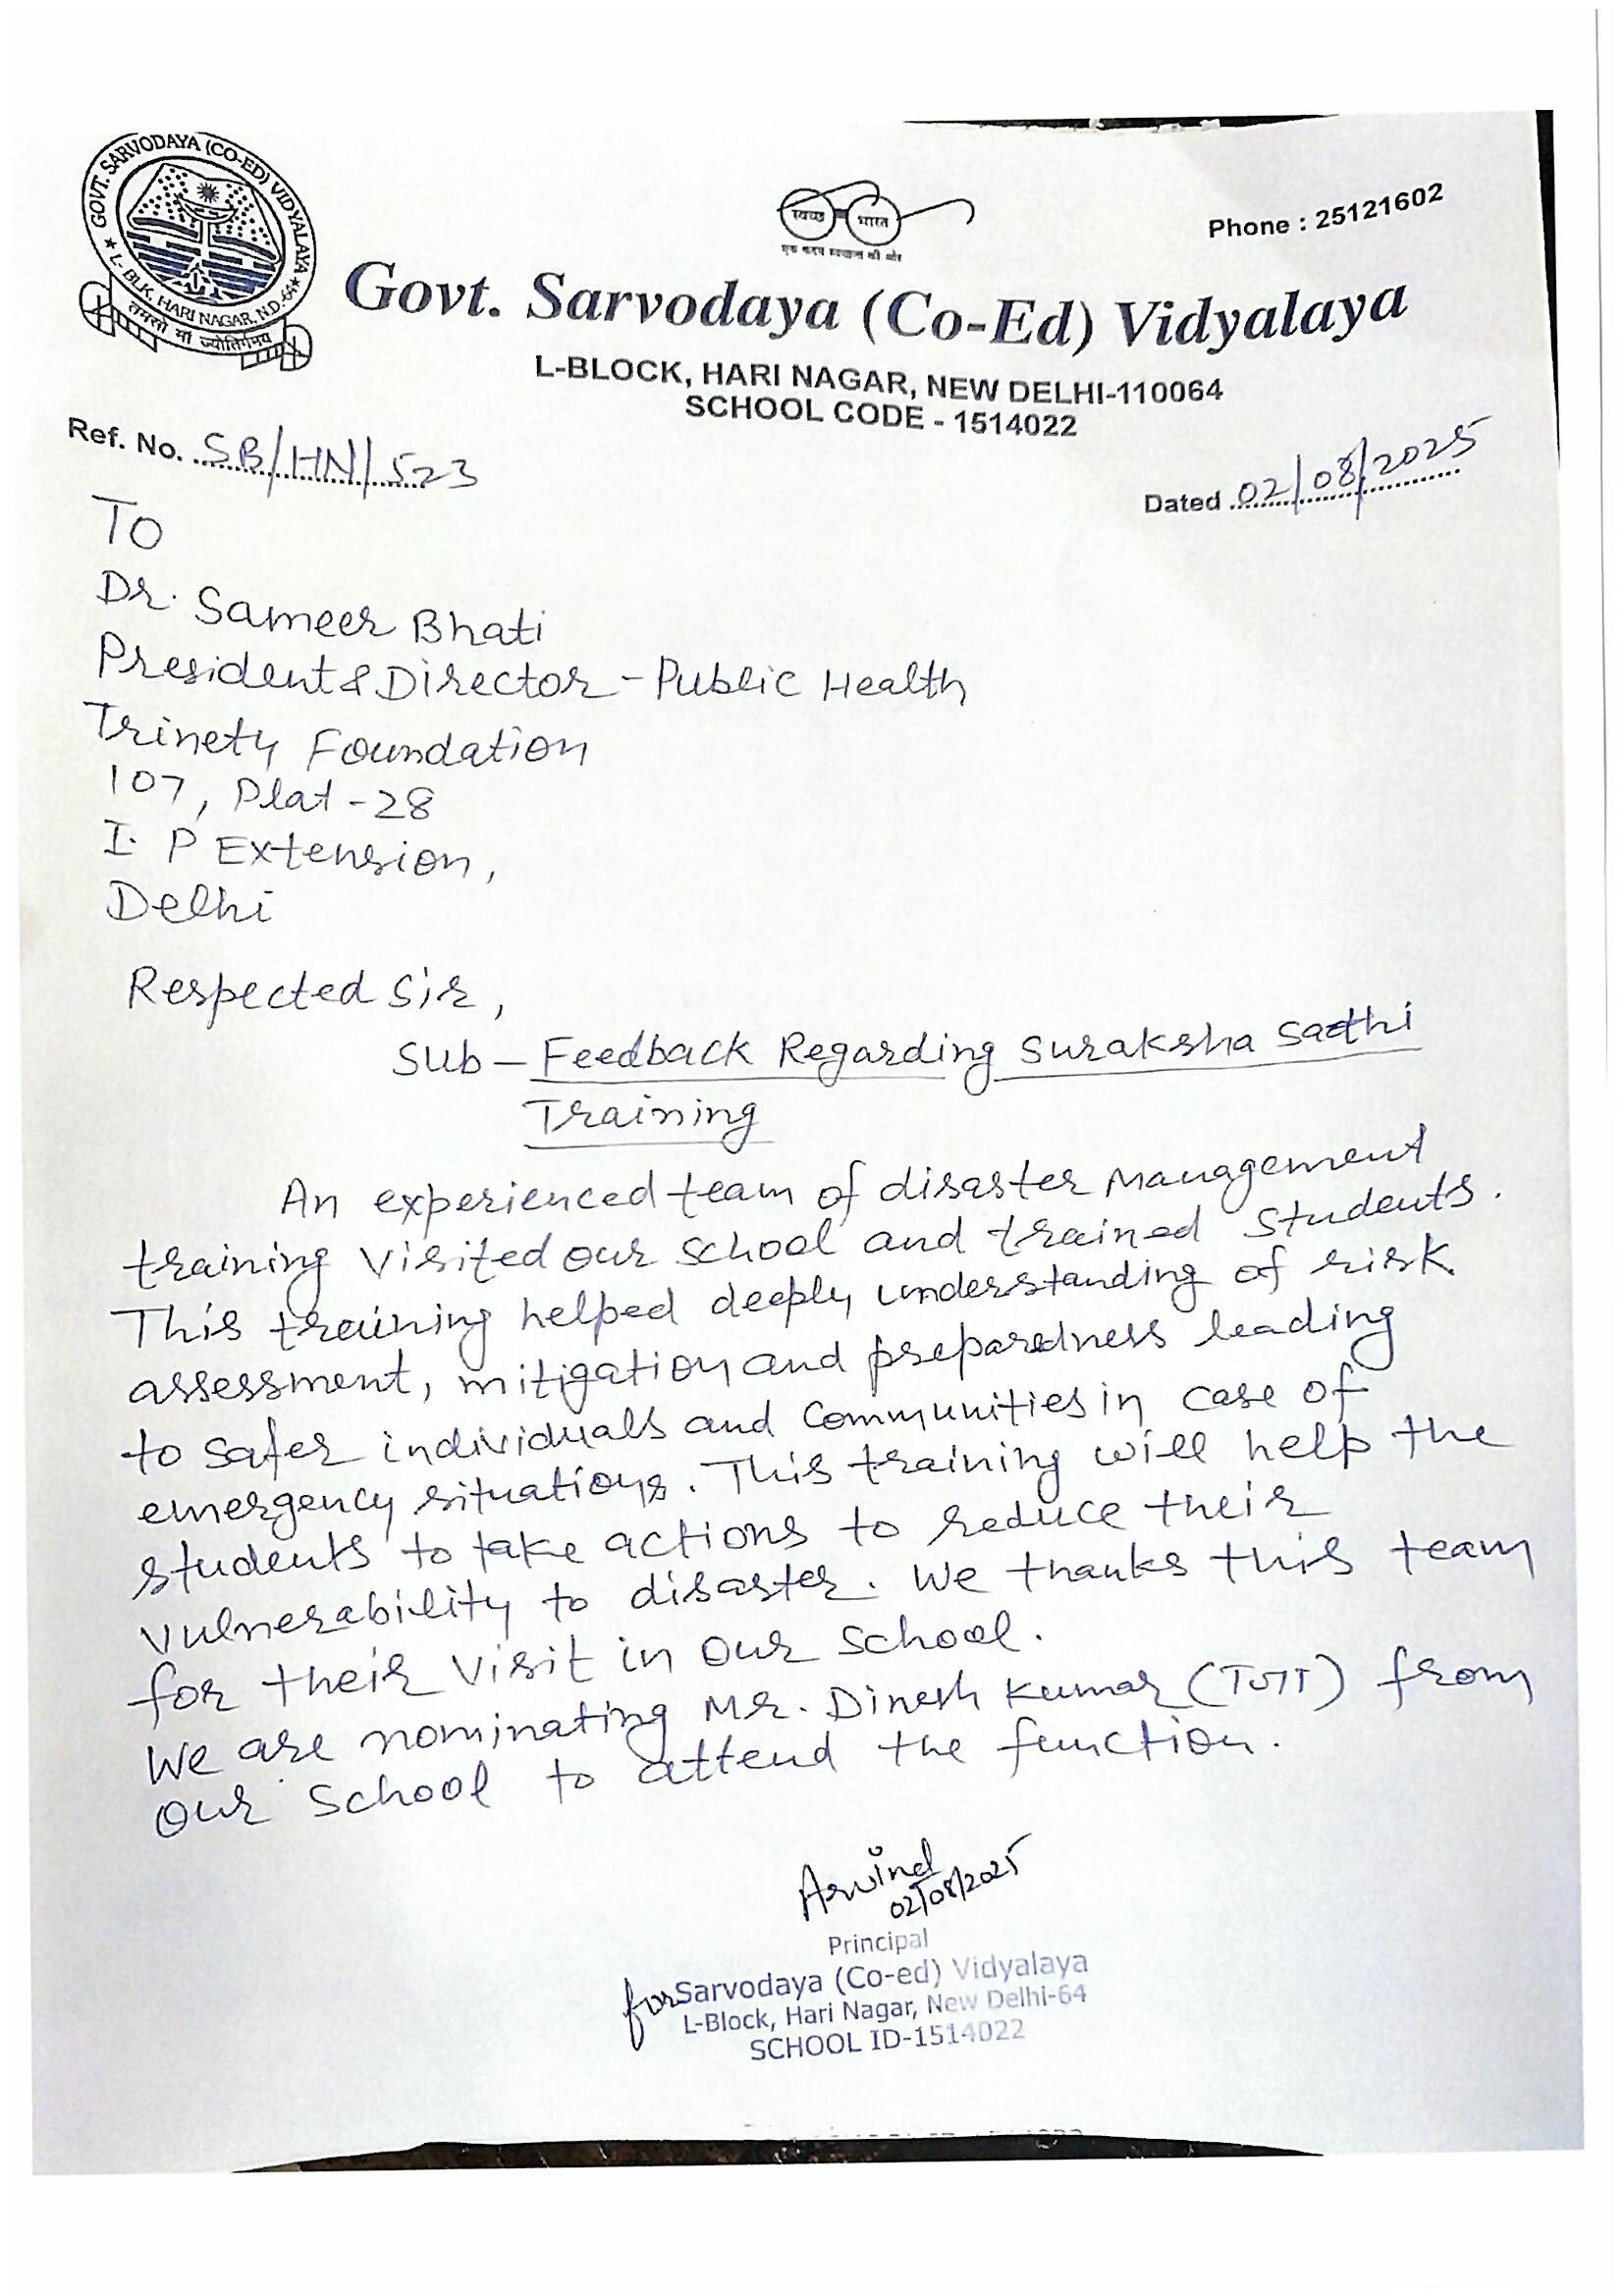 GOVT. SARVODAYA (CO-ED) VIDYALAYA
★ L- BLK. HARI NAGAR, N.D.-64 ★
तमसो मा ज्योतिर्गमय
स्वच्छ भारत
एक कदम स्वच्छता की ओर
Phone : 25121602
Govt. Sarvodaya (Co-Ed) Vidyalaya
L-BLOCK, HARI NAGAR, NEW DELHI-110064
SCHOOL CODE - 1514022
Ref. No. SB/HN/523
Dated 02/08/2025
To
Dr. Sameer Bhati
President & Director - Public Health
Trinety Foundation
107, Plat - 28
I. P Extension,
Delhi
Respected Sir,
Sub - Feedback Regarding Suraksha Saathi
Training
An experienced team of disaster Management
training visited our school and trained students.
This training helped deeply understanding of risk
assessment, mitigation and preparedness leading
to safer individuals and communities in case of
emergency situations. This training will help the
students to take actions to reduce their
vulnerability to disaster. We thanks this team
for their visit in our school.
We are nominating Mr. Dinesh Kumar (TGT) from
our school to attend the function.
Arwind
02/08/2025
Principal
for Sarvodaya (Co-ed) Vidyalaya
L-Block, Hari Nagar, New Delhi-64
SCHOOL ID-1514022